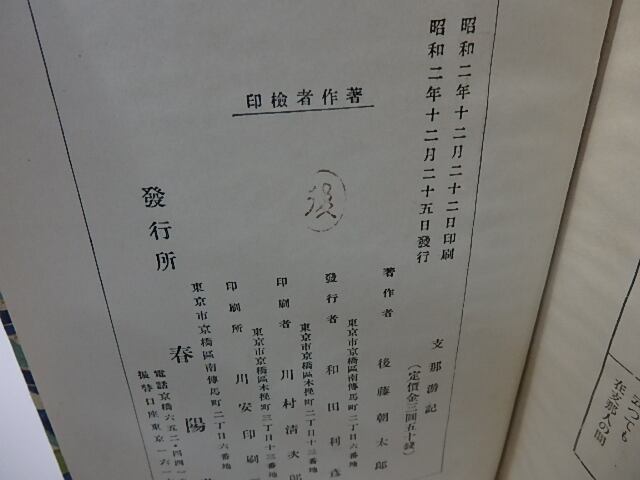 昭和二年十二月二十二日印刷
昭和二年十二月二十五日發行
著作者檢印
後
支那游記
(定價金三圓五十錢)
著作者 後藤朝太郎
東京市京橋區南傳馬町二丁目六番地
發行者 和田利彦
東京市京橋區木挽町二丁目十三番地
印刷者 川村清次郎
東京市京橋區木挽町二丁目十三番地
印刷所 川安印刷
東京市京橋區南傳馬町二丁目六番地
發行所 春陽
電話京橋六五二・四四
振替口座東京一六一
五つても
在支那人の間